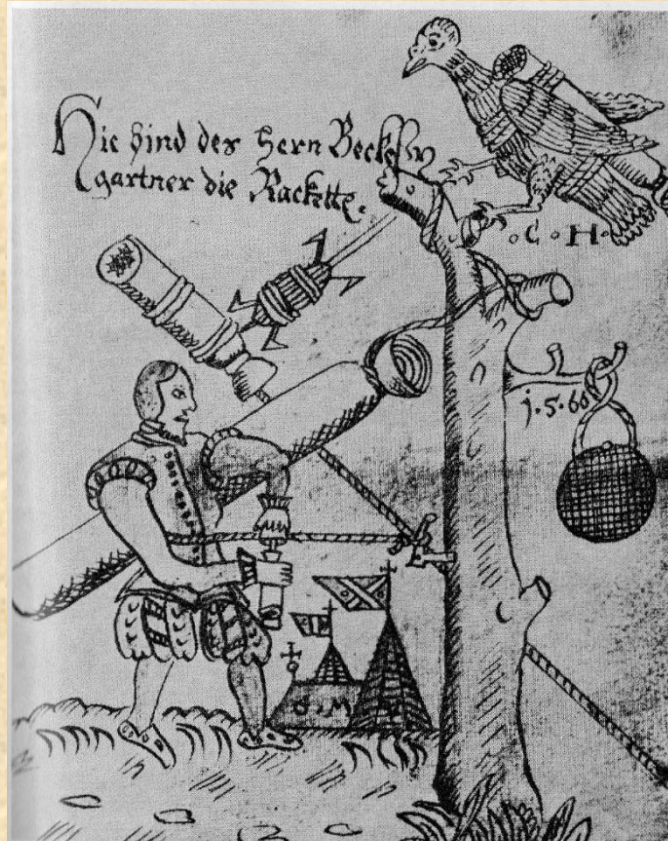 Hie sind des Hern
gartner die Rackette.
·C·H·
j·5·60